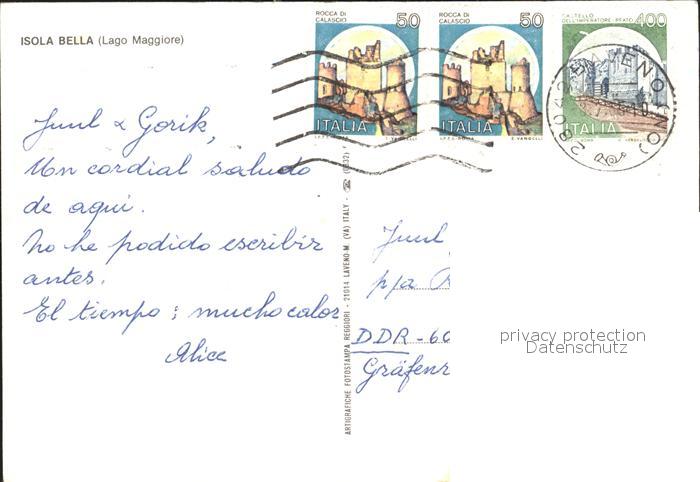 ISOLA BELLA (Lago Maggiore)
ROCCA DI
CALASCIO 50
ITALIA
ROCCA DI
CALASCIO 50
ITALIA
CASTELLO
DELL'IMPERATORE-PRATO 400
ITALIA
Juul & Gorik,
Un cordial saludo
de aquí.
No he podido escribir
antes.
El tiempo: mucho calor
Alice
ARTIGRAFICHE FOTOSTAMPA REGGIORI - 21014 LAVENO-M. (VA) ITALY - (0332)
Juul
p/a
DDR-60
Gräfenr
privacy protection
Datenschutz